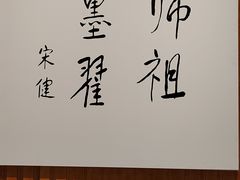 师祖
墨翟
宋健